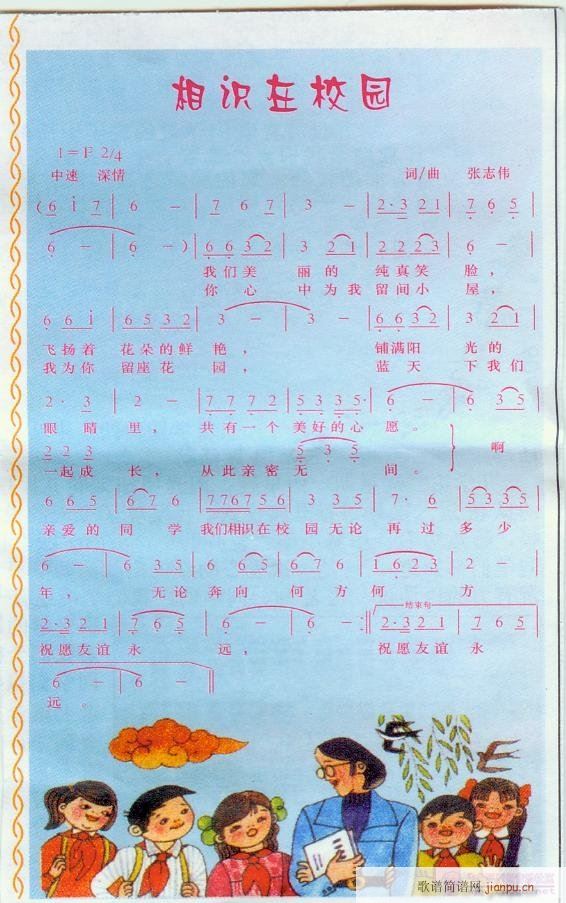 相识在校园
1=F 2/4
中速 深情 词/曲 张志伟
(6 i 7 | 6 - | 7 6 7 | 3 - | 2·3 2 1 | 7 6 5 |
6 - | 6 - ) | 6 6 3 2 | 3 2 1 | 2 2 2 3 | 6 - |
我们美 丽的 纯真笑 脸，
你心 中为我 留间小 屋，
6 6 i | 6 5 3 2 | 3 - | 3 - | 6 6 3 2 | 3 2 1 |
飞扬着 花朵的鲜 艳， 铺满阳 光的
我为你 留座花 园， 蓝天 下我们
2· 3 | 2 - | 7 7 7 2 | 5 3 3 5· | 6 - | 6 3 5 |
眼睛里， 共有一个 美好的心 愿。 啊
2 2 3 5 3 5
一起成 长， 从此亲密无 间。
6 6 5 | 6 7 6 | 7 7 6 7 5 6 | 3 3 5 | 7· 6 | 5 3 3 5 |
亲爱的 同学 我们相识在校 园无论 再过 多少
6 - | 6 3 5 | 6 6 5 | 6 7 | 1 6 2 3 | 2 - |
年， 无论 奔向 何方 何 方
结束句
2·3 2 1 | 7 6 5 | 6 - | 6 - :‖ 2·3 2 1 | 7 6 5 |
祝愿友谊 永 远， 祝愿友谊 永
6 - | 6 - ‖
远。
歌谱简谱网 jianpu.cn